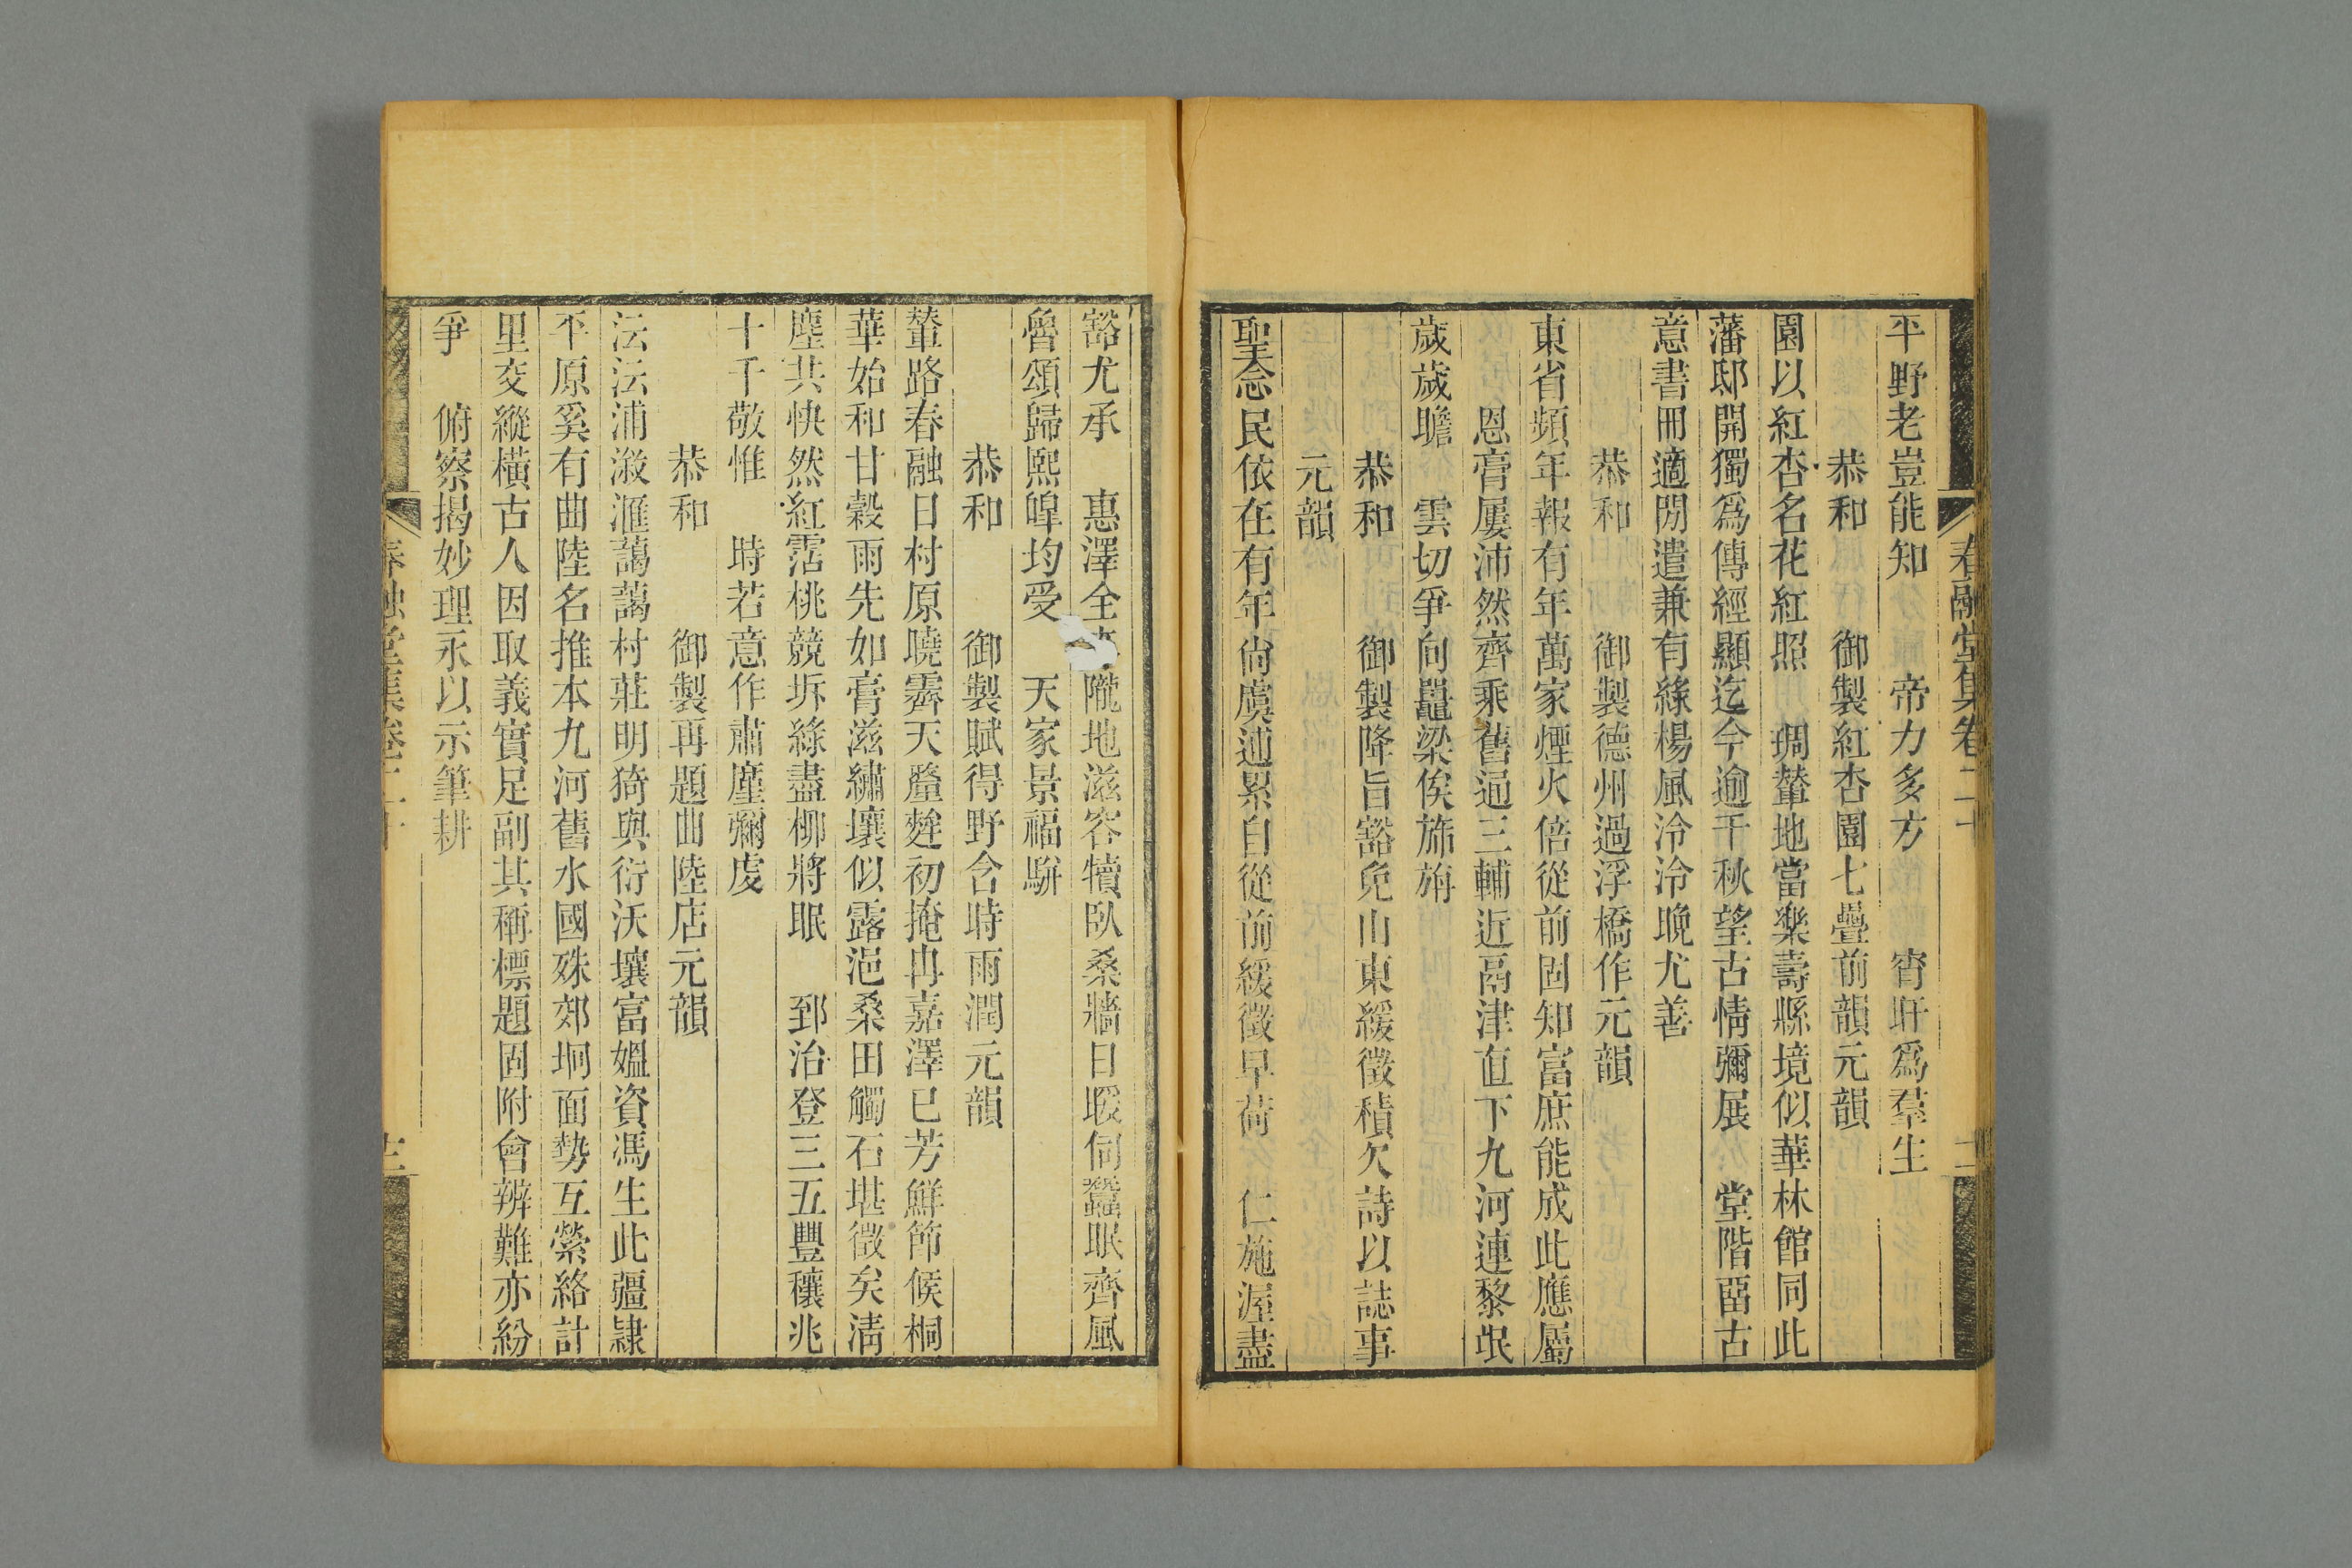 春融堂集卷二十
平野老豈能知　　帝力多方　　宵旰爲羣生
恭和　　御製紅杏園七疊前韻元韻
園以紅杏名花紅照　琱輦地當樂壽縣境似華林館同此
藩邸開獨爲傳經顯迄今逾千秋望古情彌展　堂階畱古
意書冊適閒遣兼有綠楊風泠泠晚尤善
恭和　　御製德州過浮橋作元韻
東省頻年報有年萬家煙火倍從前固知富庶能成此應屬
恩膏屢沛然齊乘舊逼三輔近鬲津直下九河連黎氓
歲歲瞻　雲切爭向黿梁俟旆旃
恭和　　御製降旨豁免山東緩徵積欠詩以誌事
元韻
聖念民依在有年尙虞逋累自從前緩徵早荷　仁施渥盡
豁尤承　惠澤全　隴地滋容犢臥桑牆日暖伺蠶眠齊風
魯頌歸熙皥均受　天家景福駢
恭和　　御製賦得野含時雨潤元韻
輦路春融日村原曉霽天釐麰初掩冉嘉澤已芳鮮節候桐
華始和甘穀雨先如膏滋繡壤似露浥桑田觸石堪徵矣淸
塵共快然紅霑桃競坼綠盡柳將眠　郅治登三五豐穰兆
十千敬惟　時若意作肅廑彌虔
恭和　　御製再題曲陸店元韻
沄沄浦漵滙藹藹村莊明猗與衍沃壤富媼資馮生此疆隷
平原奚有曲陸名推本九河舊水國殊郊坰面勢互縈絡計
里交縱橫古人因取義實足副其稱標題固附會辨難亦紛
爭　俯察揭妙理永以示筆耕
春融堂集卷二十